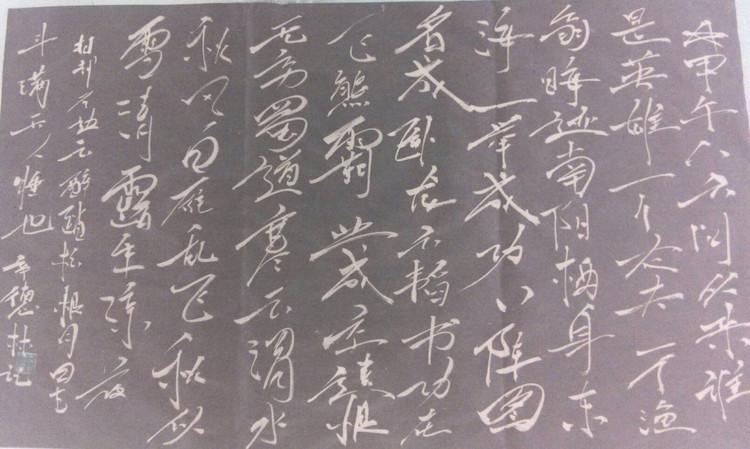 问从来谁
是英雄一个农夫一个渔
翁晦迹南阳栖身东
海一举成功八阵图
名成卧龙六韬书功在
飞熊霸业成空遗恨
无穷蜀道寒云渭水
秋风白雁乱飞秋似
雪清露生凉夜
扫却石边云醉踏松根月星
斗满天人睡也